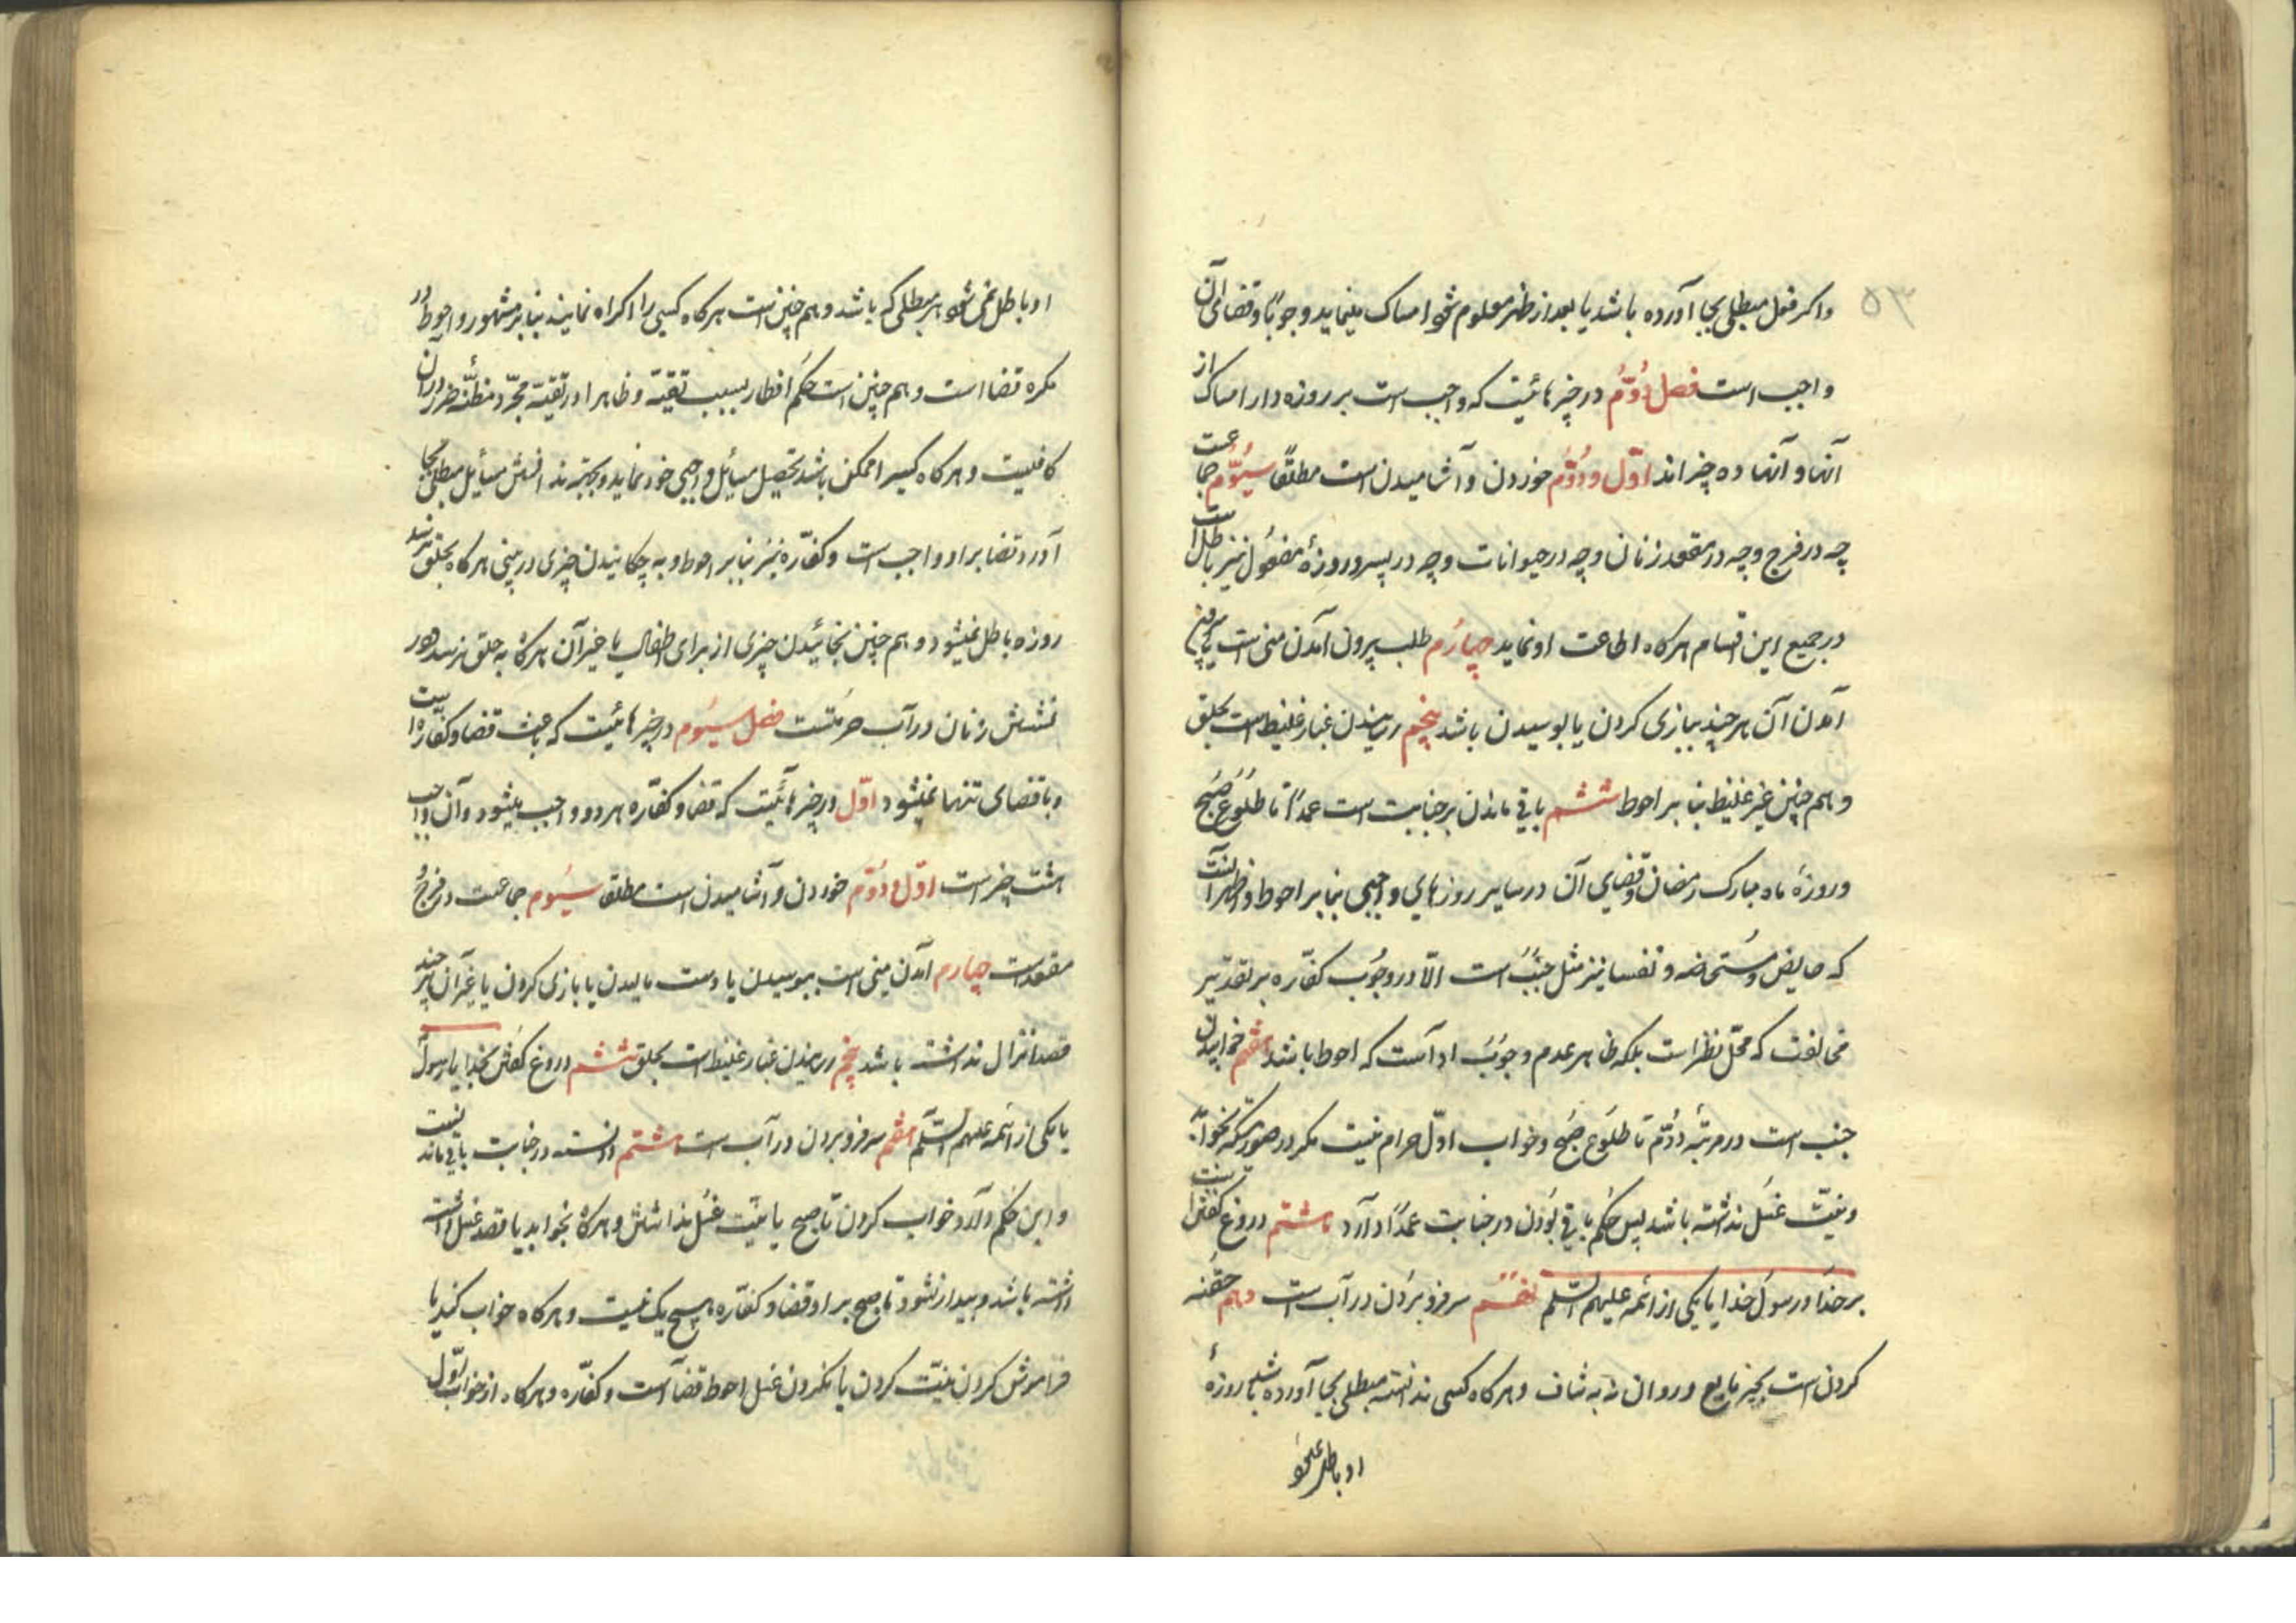 ۵۳
واکر فعل مبطلی بجا آورده باشد یا بعد از ظهر معلوم شود امساک مینماید وجوبًا و قضای آن
واجب است فصل دُوُّم در چیزهائیست که واجب است بر روزه دار امساک از
آنها و آنها ده چیز اند اوّل و دُوُّم خوردن و آشامیدن است مطلقًا سیُوّم جماعست
چه در فرج و چه در مقعد زنان و چه در حیوانات و چه در پسر و روزهٔ مفعُول نیز باطل است
در جمیع این اقسام هرکاه اطاعت او نماید چهارُم طلب بیرون آمدن منی است
آمدن آن هر چند ببازی کردن یا بوسیدن باشد پنجم رسیدن غبار غلیظ است بحلق
و هم چنین غیر غلیظ بنا بر احوط ششم باقی ماندن بر جنابت است عمدًا تا طلُوع صُبح
و روزهٔ ماه مبارک رمضان و قضای آن در سایر روزهای واجبی بنا بر احوط و ظاهر آنست
که حایض و مُستحاضه و نفسا نیز مثل جنُبُ است الّا در وجُوب کفّاره بر تقدیر
مخالفت که محلّ نظر است بلکه ظاهر عدم وجوُبَ او است که احوط باشد هفتم خوابیدن
جنب است در مرتبهٔ دوُّم تا طلُوع صُبح و خواب اوّل حرام نیست مکر در صورتیکه بخوابد
و نیّت غسُل نداشته باشد پس حُکم باقی بوُدن در جنابت عمدًا دارد هشتم دروغ کفتن است
بر خُدا و رسول خدا یا یکی از ائمه علیهم السّلم نهُم سر فرو برُدن در آب است دهم حقنه
کردن است بچیز مایع و روان نه به شاف و هرکاه کسی ندانسته مبطلی بجا آورده باشد روزهٔ
او باطل
او باطل نمی شود هر مبطلی که باشد و هم چنین است هرکاه کسی را اکراه نمایند بنا بر مشهور و احوط در
مکره قضا است و هم چنین است حُکم افطار بسبب تقیّه و ظاهرا در تقیّه مجرّد مظنّهٔ ضرر در آن
کافیست و هرکاه کسیرا ممکن باشد تحصیل مسائل واجبی خود نماید و بجهة ندانستن مسأیل مبطلی بجا
آورد قضا بر او واجب است و کفّاره نیز بنا بر احوط و به چکانیدن چیزی در بینی هرکاه بحلق نرسد
روزه باطل نمیشود و هم چنین بخائیدن چیزی از برای اطفال یا غیر آن هرکاه به حلق نرسد و در
نشستن زنان در آب حرمتست فصل سیُوم در چیزهائیست که باعث قضا و کفّاره است
و یا قضای تنها میشود اوّل در چیزهائیست که قضا و کفّاره هر دو واجب میشود و آن واجب
هشت چیز است اوّل و دُوّم خوردن و آشامیدن است مطلقا سیُوم جماعت در فرج و
مقعد است چهارم آمدن منی است ببوسیدن یا دست مالیدن یا بازی کردن یا غیر آن هر چند
قصد انزال نداشته باشد پنجم رسیدن غبار غلیظ است بحلق ششم دروغ کفتن بخدا یا رسول
یا یکی از ائمه علیهم السّلم هفتم سر فرو بردن در آب است هشتم دانسته در جنابت باقی ماند نیست
و این حُکم دارد خواب کردن تا صبح یا نیّت غسُل نداشتن و هرکاه بخوابد یا قصد غسل داشت
داشته باشد و بیدار نشود تا صبح بر او قضا و کفّاره هیچ یک نیست و هرکاه خواب کند یا
فراموش کردن نیّت کردن یا نکردن غسل احوط قضا است و کفّاره و هرکاه از خواب اوّل